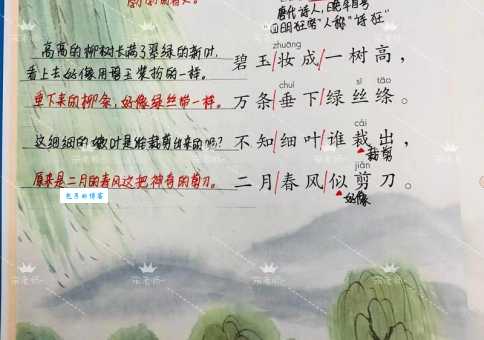 唐代诗人,晚年自号
四明狂客"人称"诗狂"
高高的柳树长满了翠绿的新叶,
看上去好像用碧玉装扮的一样。
zhuāng
碧玉/妆成/一树高,
垂下来的柳条,好像绿丝带一样。
chuí sī tāo
万条/垂下/绿丝绦。
这细细的嫩叶是谁裁剪出来的呢?
cái
不知/细叶/谁裁出,
裁剪
原来是二月的春风这把神奇的剪刀。
jiǎn
二月/春风/似剪刀。
好像